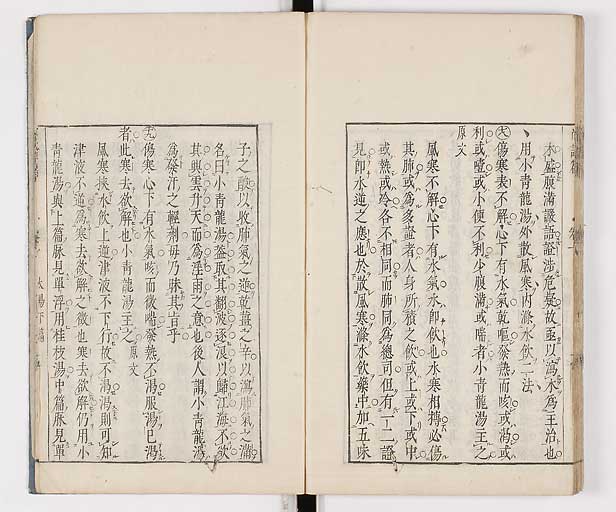 木盛腹滿譫語證涉危疑故亟以瀉木為主治也
用小青龍湯外散風寒內滌水飲二法
傷寒表不解心下有水氣乾嘔發熱而咳或渴或
利或噎或小便不利少腹滿或喘者小青龍湯主之
原文
風寒不解心下有水氣水即飲也水寒相搏必傷
其肺或為多證者人身所積之飲或上或下或中
或熱或冷各不相同而肺同為總司但有一二證
見即水逆之應也於散風寒滌水飲藥中加五味
子之酸以收肺氣之逆乾薑之辛以瀉肺氣之滿
名曰小青龍湯蓋取其翻波逐浪以歸江海不欲
其興雲升天而為淫雨之意也後人謂小青龍湯
為發汗之輕劑毋乃昧其旨乎
傷寒心下有水氣咳而微喘發熱不渴服湯已渴
者此寒去欲解也小青龍湯主之 原文
風寒挾水飲上逆津液不下行故不渴渴則可知
津液不逆為寒去欲解之徵也寒去欲解仍用小
青龍湯與上篇脉見單浮用桂枝湯中篇脉見單